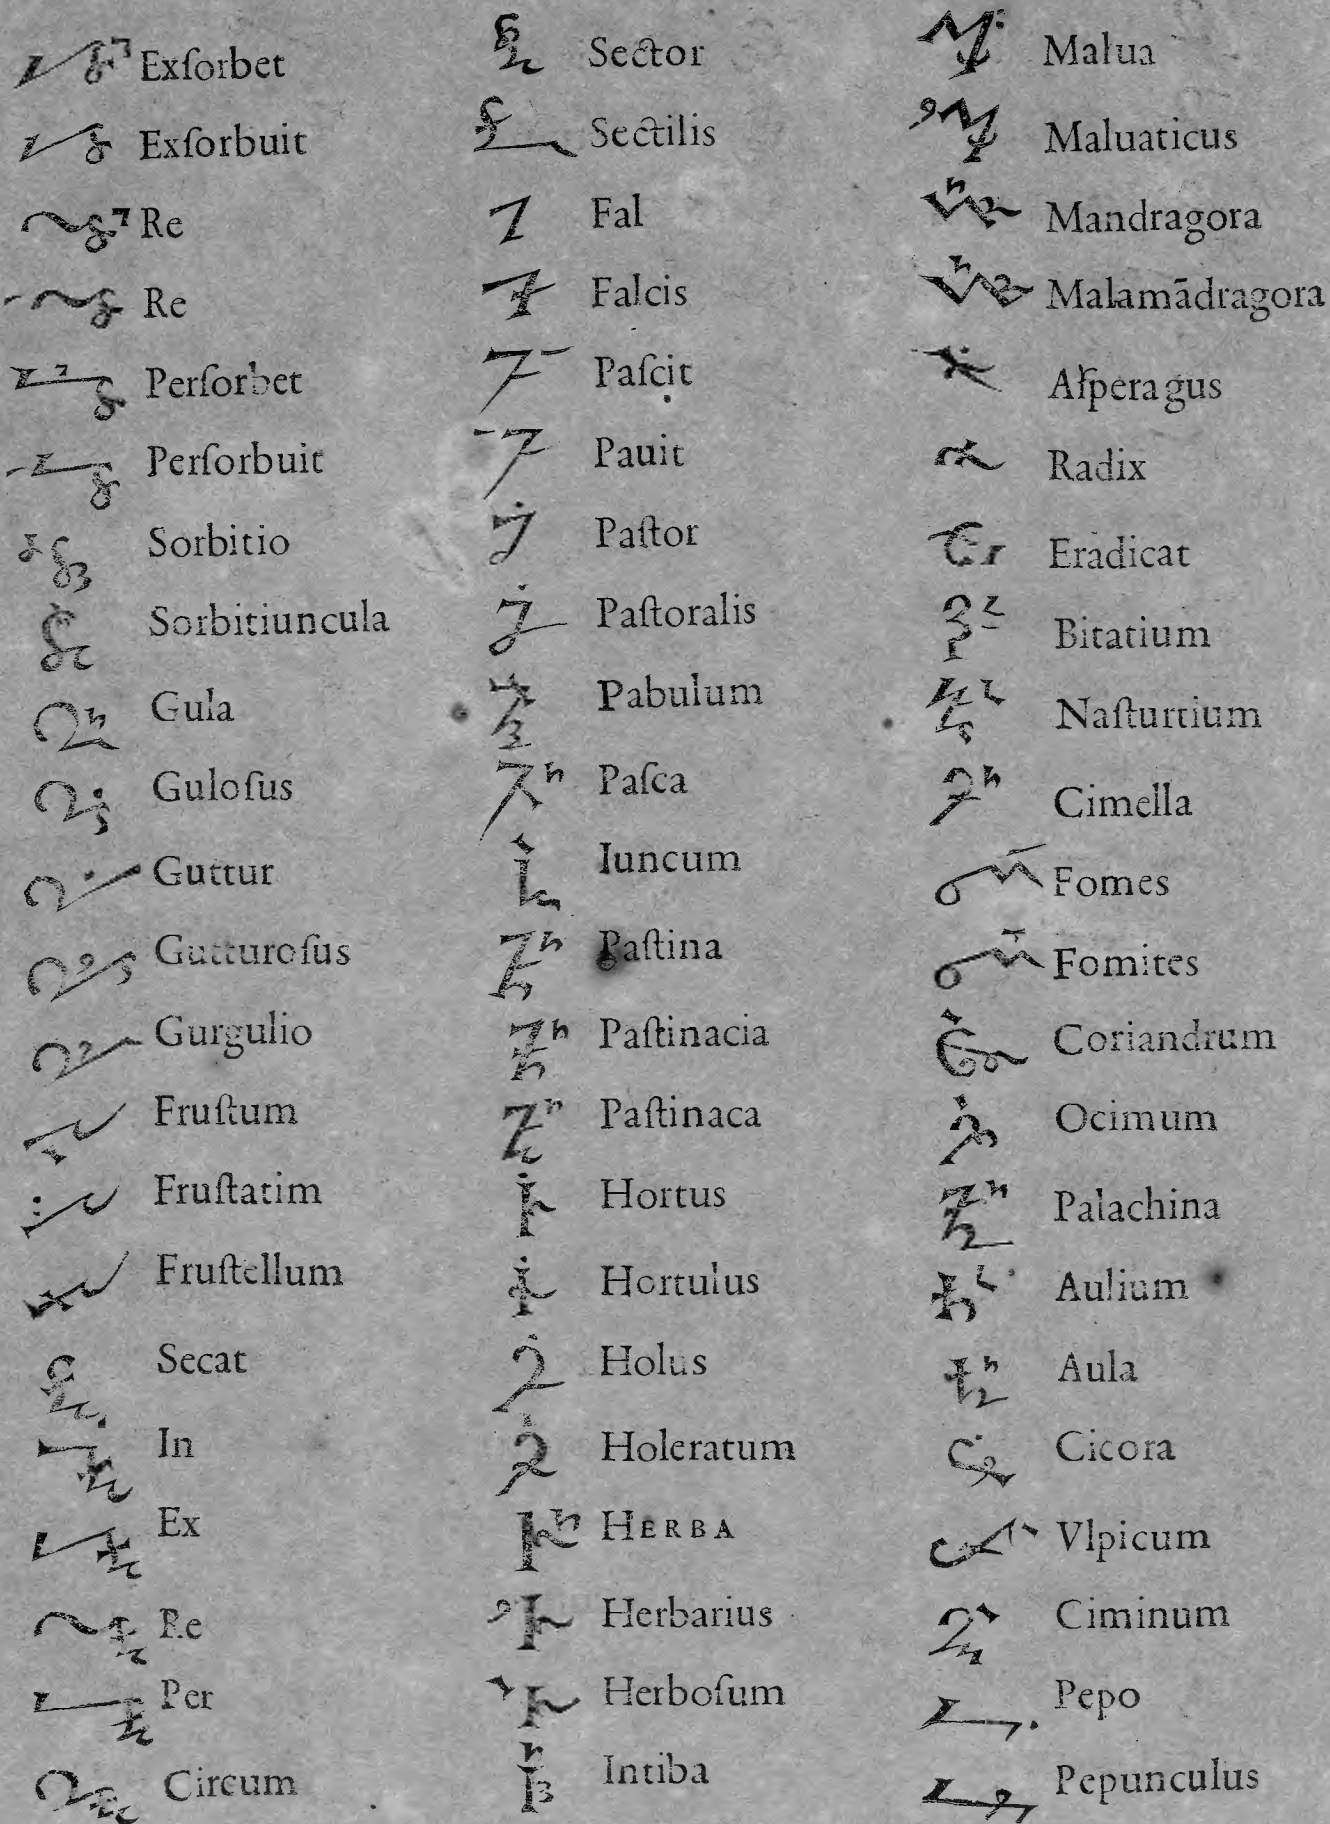 Exſorbet
Exſorbuit
Re
Re
Perſorbet
Perſorbuit
Sorbitio
Sorbitiuncula
Gula
Guloſus
Guttur
Gutturoſus
Gurgulio
Fruſtum
Fruſtatim
Fruſtellum
Secat
In
Ex
Re
Per
Circum
Sector
Sectilis
Fal
Falcis
Paſcit
Pauit
Paſtor
Paſtoralis
Pabulum
Paſca
Iuncum
Paſtina
Paſtinacia
Paſtinaca
Hortus
Hortulus
Holus
Holeratum
HERBA
Herbarius
Herboſum
Intiba
Malua
Maluaticus
Mandragora
Malamādragora
Aſperagus
Radix
Eradicat
Bitatium
Naſturtium
Cimella
Fomes
Fomites
Coriandrum
Ocimum
Palachina
Aulium
Aula
Cicora
Vlpicum
Ciminum
Pepo
Pepunculus